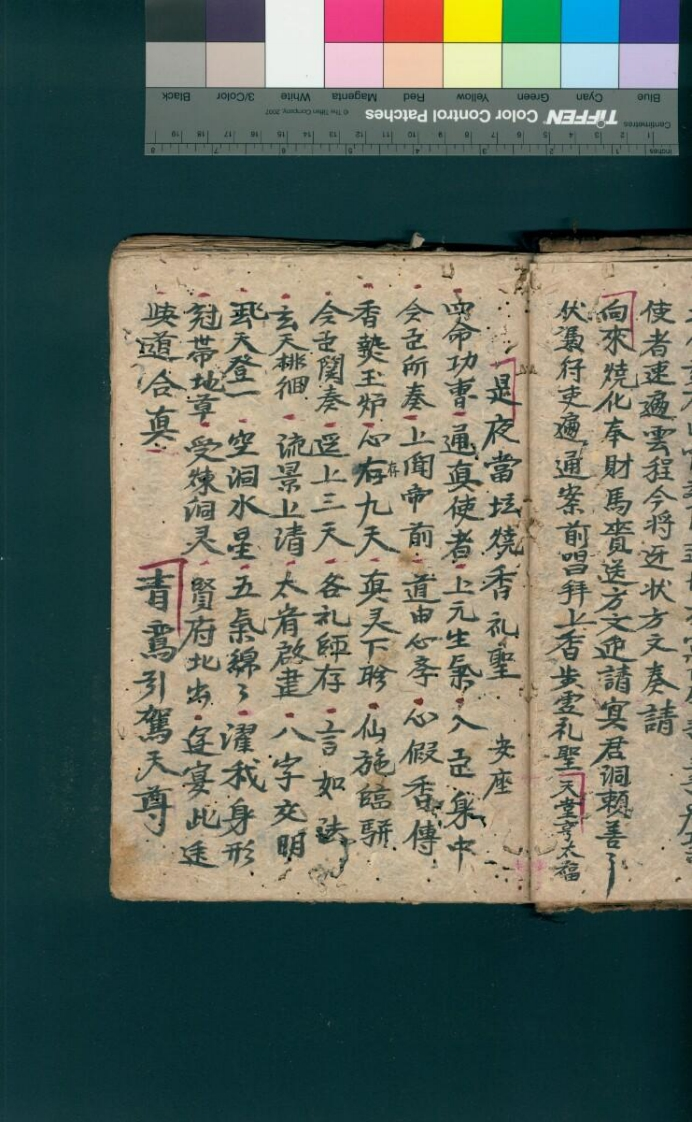 使者速遍雲程今将近状方文奏請
向來燒化奉財馬賫送方文迎請寘君洞賴善了
伏濅行吏遍通案前唱拜上香步雲礼聖 天堂亨太福
是夜當坛燒香礼聖 安座
命功曹 通真使者 上元生氣 入臣身中
令臣所奏 上聞帝前 道由心孝 心假香傳
香爇玉炉 心存九天 真灵下盻 仙旆臨軿
存
令臣関奏 逕上三天 各礼師存 言如法
玄天徘徊 流景上清 太宥啟建 八字交明
飛天登一 空洞水星 五氣綿々 濯我身形
冠带地章 受煉洞灵 賢府北出 逆宴此途
道合真 青鸞引駕天尊
Centimetres
TIFFEN Color Control Patches
© The Tiffen Company, 2007
Inches
Blue
Cyan
Green
Yellow
Red
Magenta
White
3/Color
Black